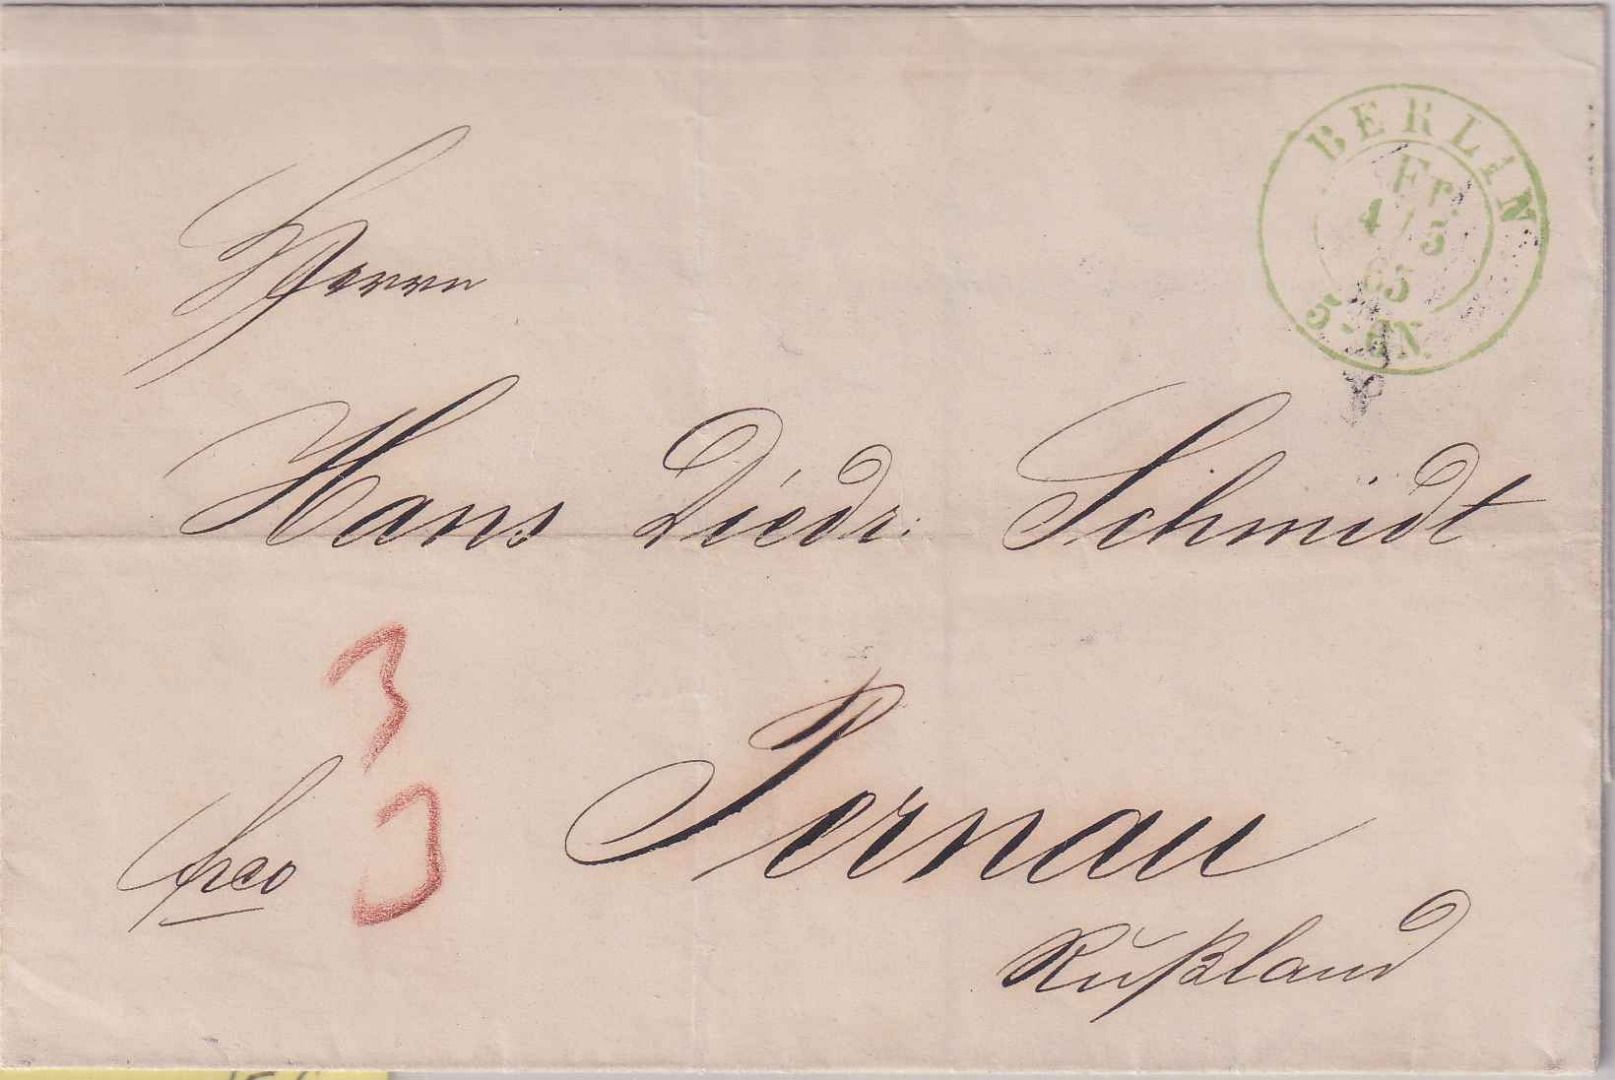 BERLIN
Fr.
4 / 5
65
5-6N.
Herrn
Hans Diedr: Schmidt
3
frco
3
Pernau
Rußland